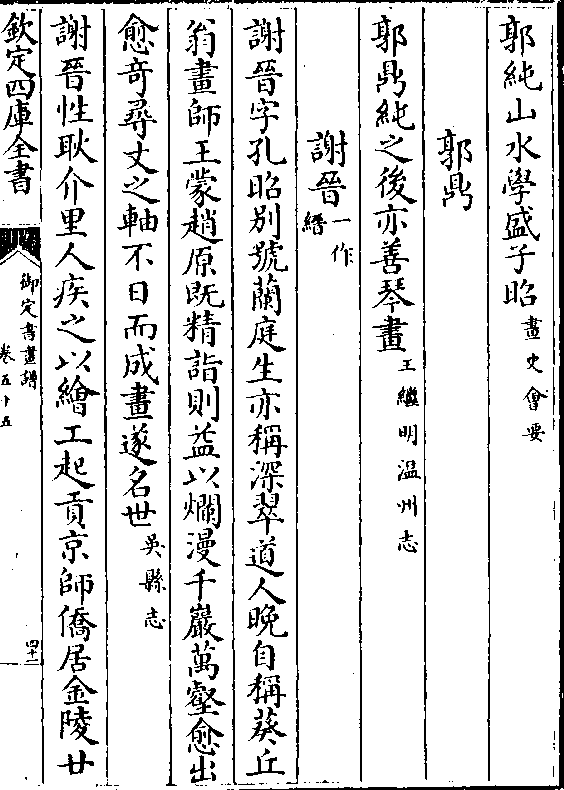 郭純山水學盛子昭畫史會要
郭鼎
郭鼎純之後亦善琴畫王繼明温州志
謝晉一作縉
謝晉字孔昭别號蘭庭生亦稱深翠道人晚自稱葵丘
翁畫師王蒙趙原既精詣則益以爛漫千巖萬壑愈出
愈奇尋丈之軸不日而成畫遂名世吳縣志
謝晉性耿介里人疾之以繪工起貢京師僑居金陵廿
欽定四庫全書
御定書畫譜
卷五十五
四十二